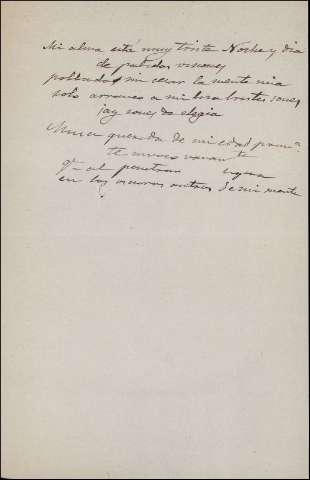 Mi alma está muy triste Noche y dia
de palidas visiones
poblada sin cesar la mente mia
solo arranco a mi lira tristes sones
¡ay sones de elegia
Nunca de mi edad
te
q.e al penetrar
en los oscuros antros de mi mente